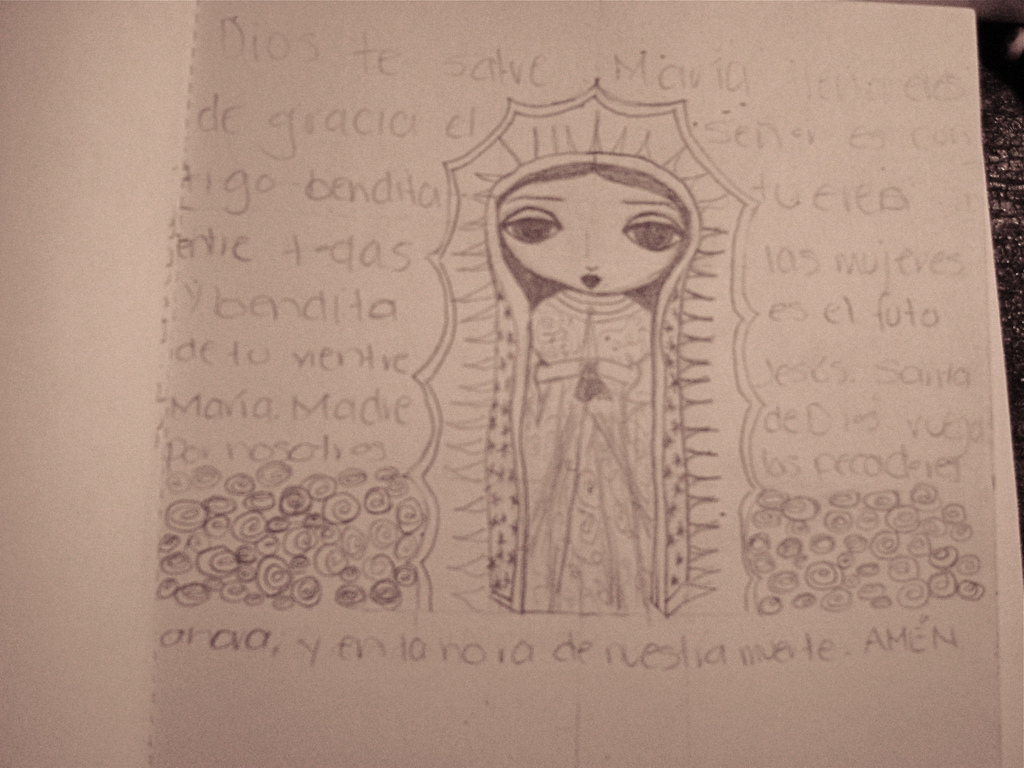 Dios te salve María llena eres
de gracia el Señor es con
tigo bendita tu eres
entre todas las mujeres
y bendita es el futo
de tu vientre Jesús. Santa
María Madre de Dios ruega
por nosotros los pecadores
ahora, y en la hora de nuestra muerte. AMÉN